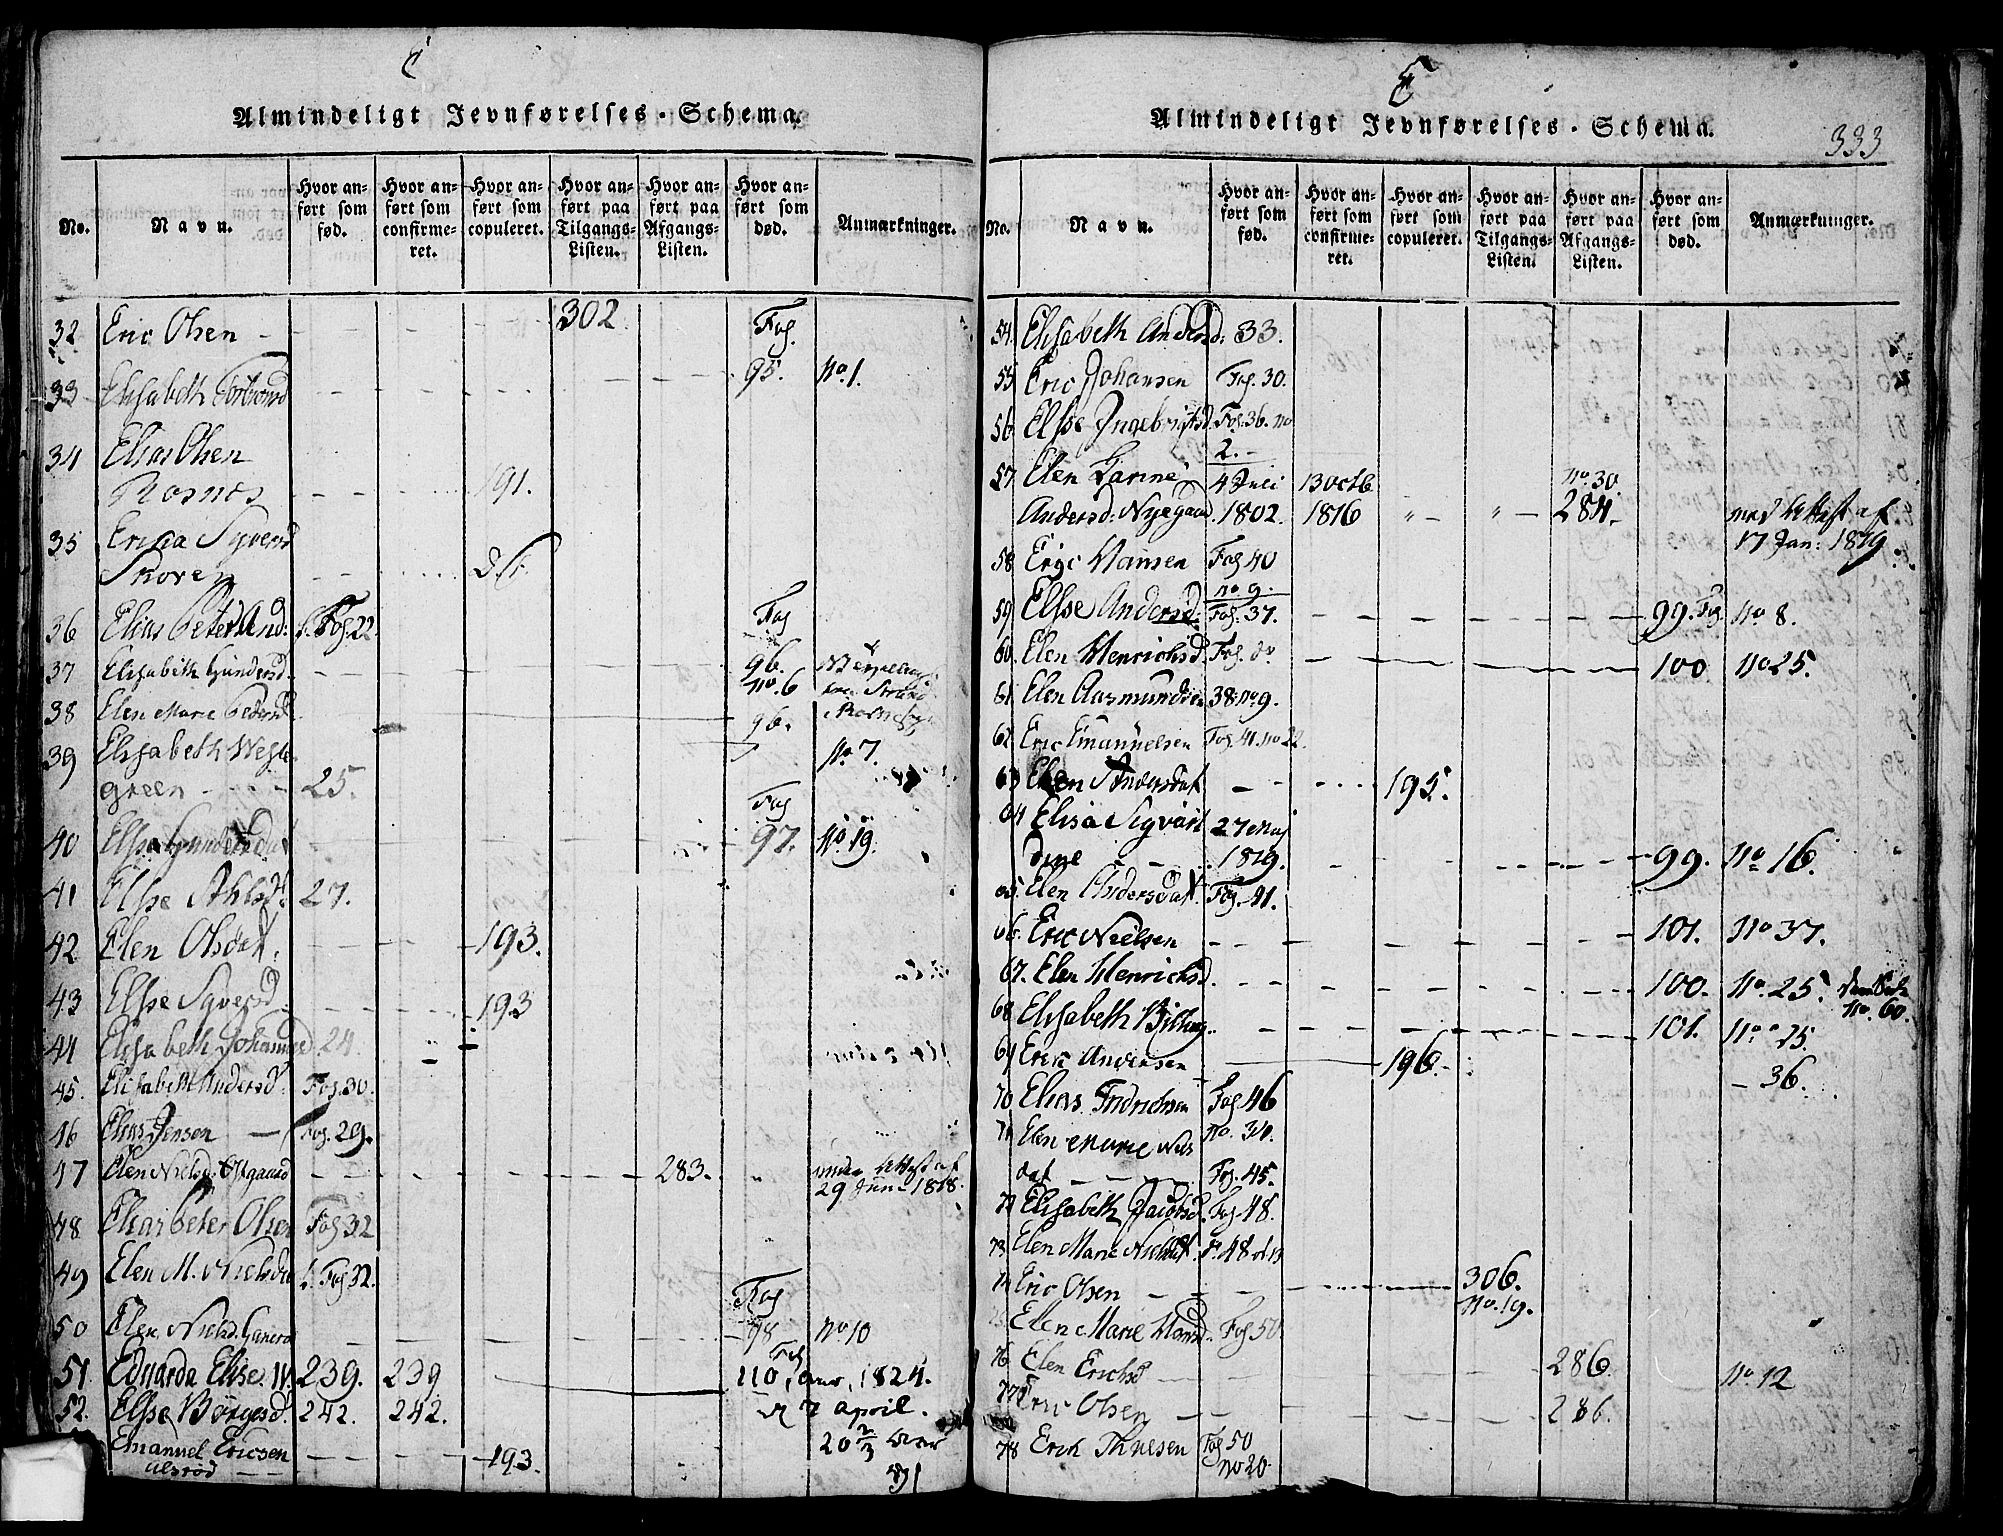 E
Almindeligt Jevnførelses-Schema.
No.
Navn.
Hvor anført som fød.
Hvor anført som confirmeret.
Hvor anført som copuleret.
Hvor anført paa Tilgangs-Listen.
Hvor anført paa Afgangs-Listen.
Hvor anført som død.
Anmærkninger.
32 Eric Olsen - 302
33 Elisabeth Fag. 95. No. 1.
34 Elias Olsen
Rosnes 191.
35 Syversd
Skoven
36 Elias Peter And: Fag. 22.
37 Elisabeth Gundersd. Fag 96. No. 6
38 Elen Marie Pedersd 96.
39 Elisabeth Wesle- No. 7.
green - 25.
40 Elsse Gundersdat Fag 97. No. 19.
41 Elsse 27.
42 Elen Olsdat. 193.
43 Elsse Syversd 193
44 Elisabeth Johannesd. 24.
45. Elisabeth Andersd. Fag. 30.
46 Elias Jensen - Fag. 29.
47 Elen Nielsd. 283. under Attest af
29 Juni 1818.
48 Elias Peter Olsen Fag 32
49 Elen M. Nielsda Fag 32.
50 Elen Nielsd. Fag 98 No 10
51 Eduarda Elise. W. 239. 239 110, 1824.
52. Elsse Børgesd. 242. 242. 7 April.
Emanuel Ericsen 193.
E
Almindeligt Jevnførelses-Schema.
333
No.
Navn.
Hvor anført som fød.
Hvor anført som confirmeret.
Hvor anført som copuleret.
Hvor anført paa Tilgangs-Listen.
Hvor anført paa Afgangs-Listen.
Hvor anført som død.
Anmærkninger.
54. Elisabeth Andersd: 33.
55 Eric Johansen Fag. 30.
56 Elsse Ingebrigtsd. Fag. 36. no
2. -
57 Elen Karine 4 Juli 13 Octb No. 30.
Andersd: Nyegaard. 1802. 1816 284. med Attest af
17 Jan: 1819.
58 Eric Hansen Fag 40
no 9.
59 Elsse Andersd. Fag. 37. 99. Fag No 8.
60. Elen Henrichsd. Fag. do. 100 No 25.
61 Elen Aasmundsen 38. no 9.
62 Eric Emanuelsen Fag. 41. no 22.
63 Elen Andersdat 195.
64 Elisa Sigvart 27 Maj
dine 1819. 99. No. 16.
65 Elen Andersdat. Fag. 41.
66. Eric Nielsen 101. No 37.
67. Elen Henrichsd. 100. No. 25. No. 60.
68 Elisabeth 101. No. 25.
69 Eric Andersen 196. - 36.
70 Elias. Fridrichsen Fag 46
71 Elen Marie Niels No. 34.
dat Fag. 45.
72 Elisabeth Jacobsd. Fag. 48.
73 Elen Marie Nielsdat. F. 48
74 Eric Olsen 306.
No. 19.
Elen Marie Hansd. Fag 50
76 Elen Erichsd 286. No 12
77 Eric Olsen 286.
78 Erich Fag 50
No 20.